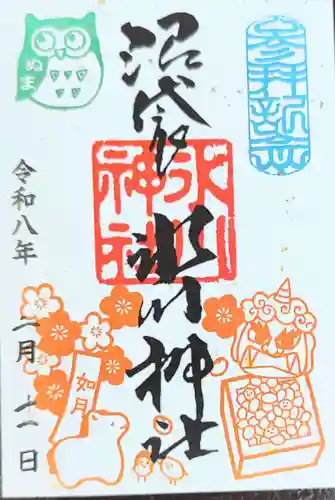 参拝記念
沼袋氷川神社
氷川神社
ぬま
令和八年
二月
十一日
如月